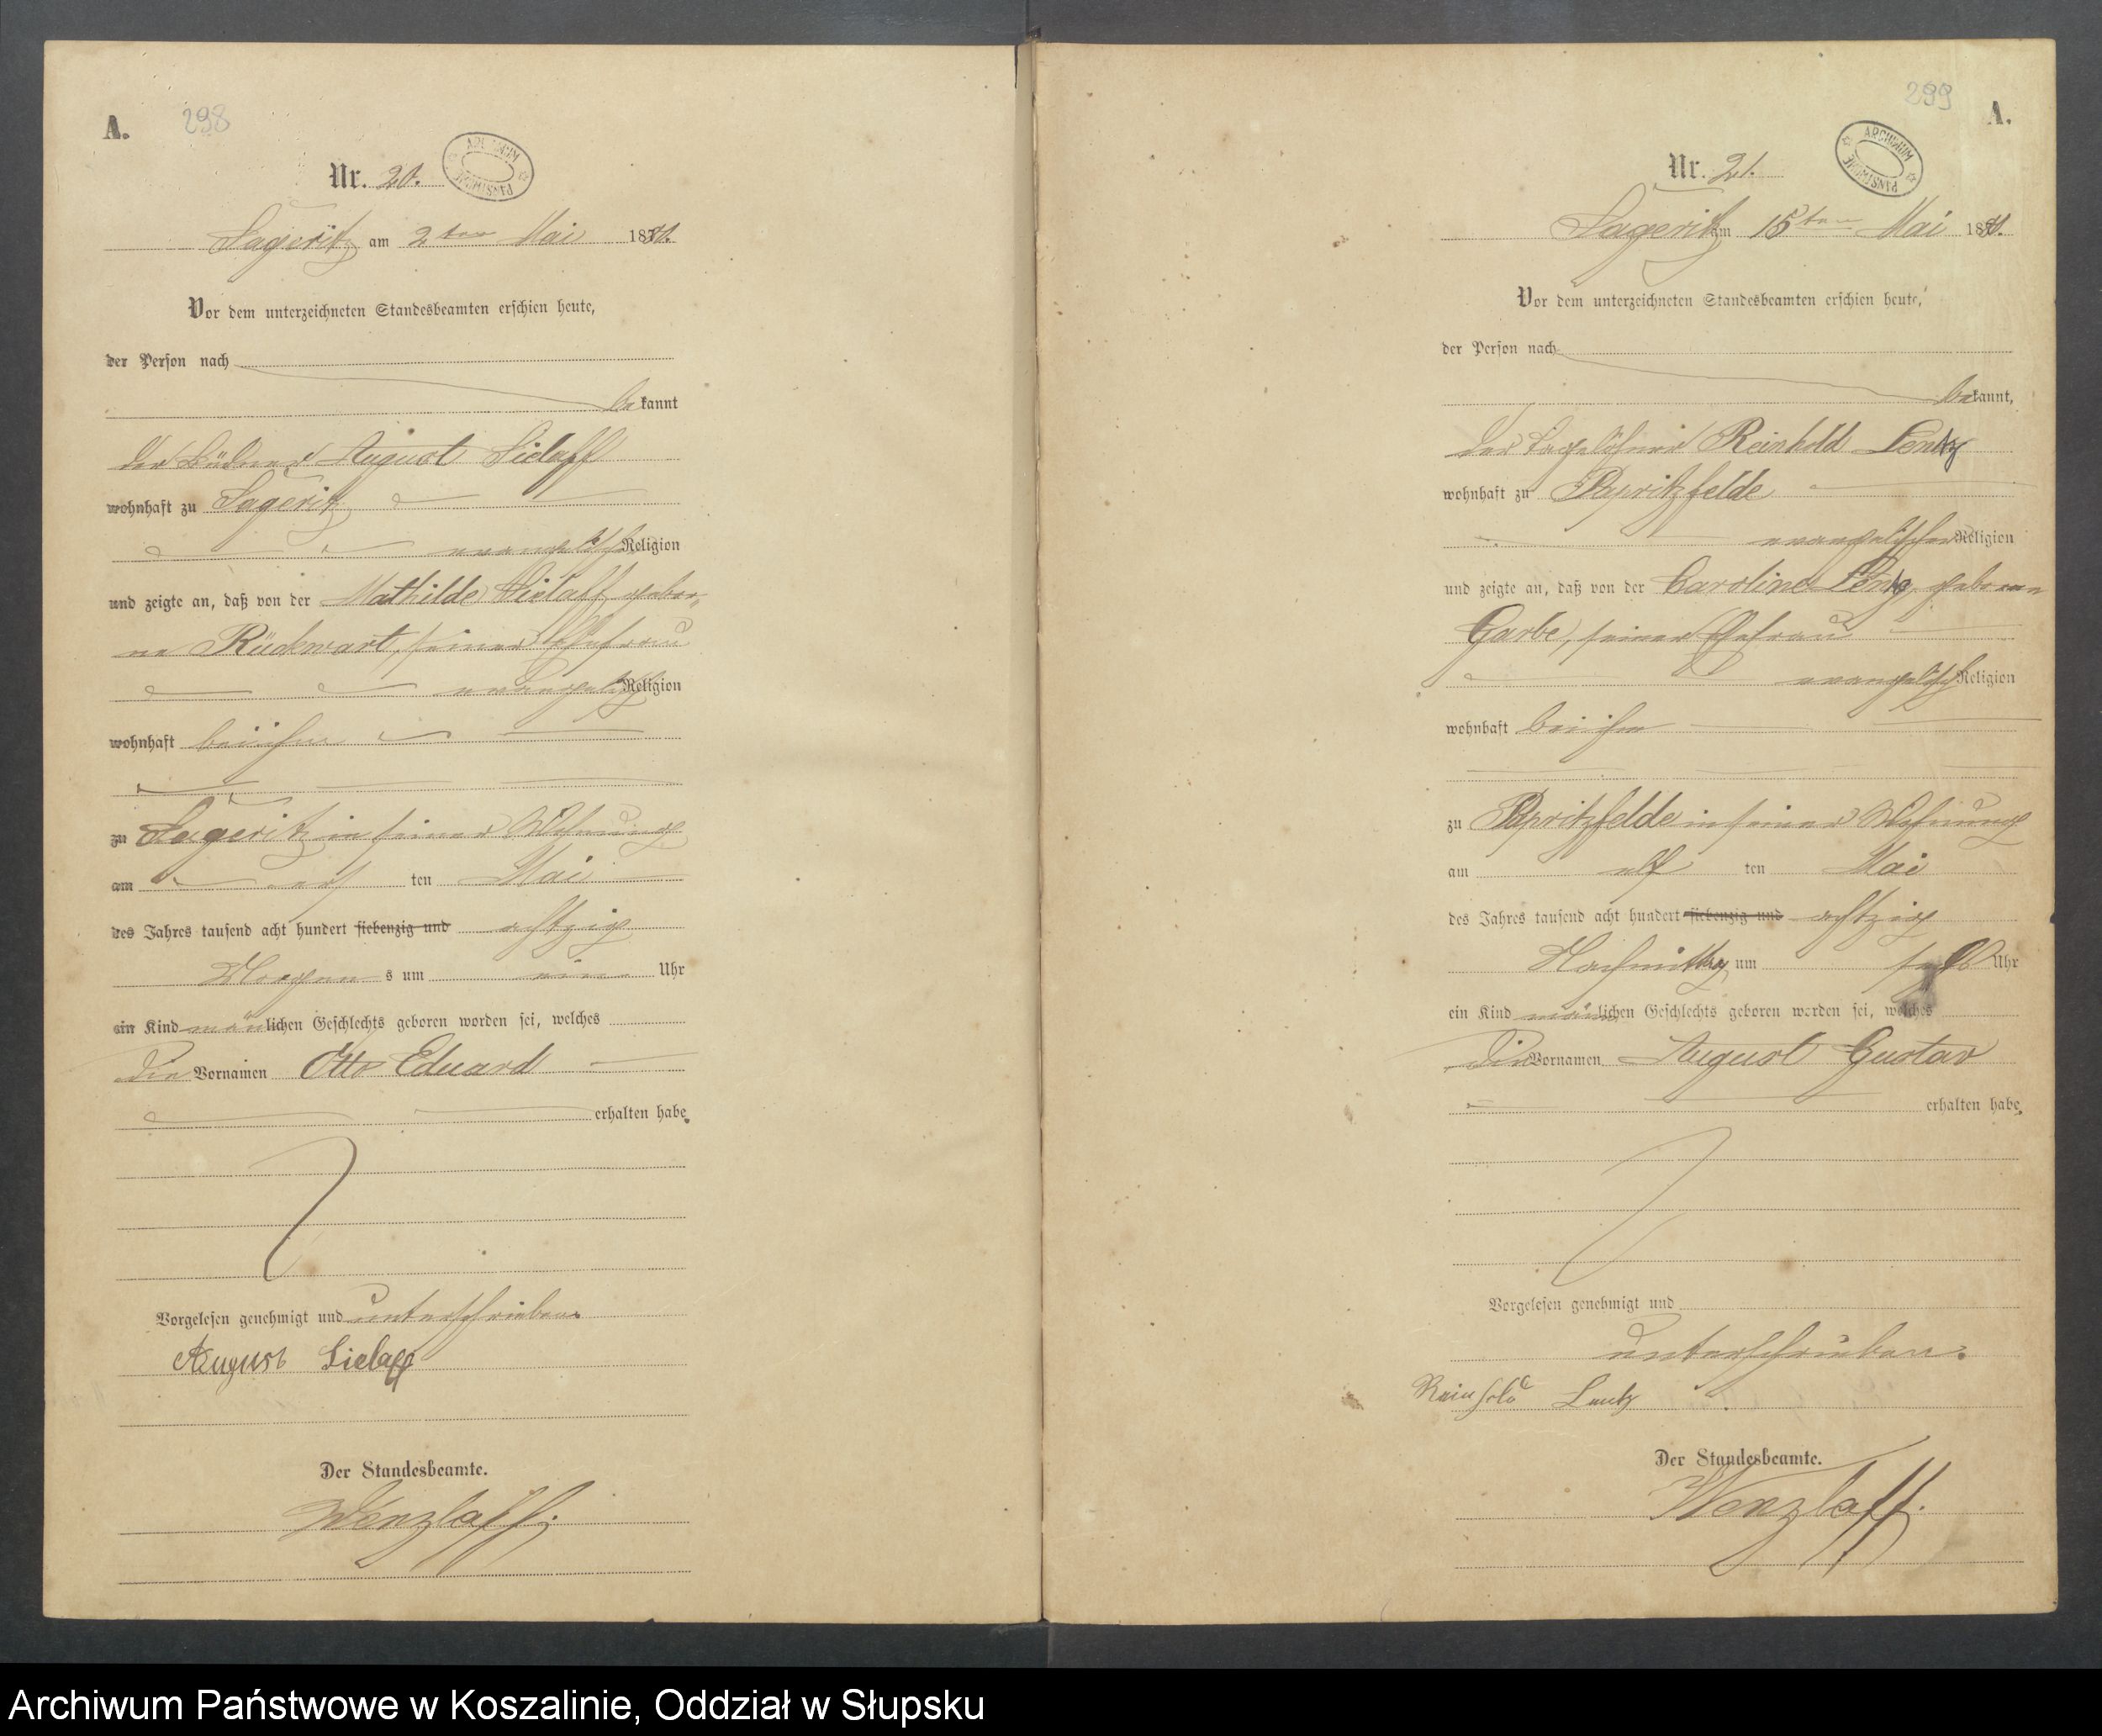 A. 298
ARCHIWUM PAŃSTWOWE
Nr. 20.
Sageritz am 2ten Mai 1880.
Vor dem unterzeichneten Standesbeamten erschien heute,
der Person nach
bekannt
der Büdner August Sielaff
wohnhaft zu Sageritz
Religion
und zeigte an, daß von der Mathilde Sielaff gebor-
ne Rückwart, seiner Ehefrau
evangelisch Religion
wohnhaft bei ihm
zu Sageritz in seiner Wohnung
am ersten Mai
des Jahres tausend acht hundert siebenzig und achtzig
Morgens um ein Uhr
ein Kind mänlichen Geschlechts geboren worden sei, welches
die Vornamen Otto Eduard
erhalten habe.
Vorgelesen genehmigt und unterschrieben.
August Sielaff
Der Standesbeamte.
Wenzlaff.
299 A.
ARCHIWUM PAŃSTWOWE
Nr. 21.
Sageritz am 15ten Mai 1880.
Vor dem unterzeichneten Standesbeamten erschien heute,
der Person nach
bekannt,
der Tagelöhner Reinhold Lentz
wohnhaft zu Papritzfelde
evangelischer Religion
und zeigte an, daß von der Caroline Lentz, geborene
Garbe, seiner Ehefrau
evangelisch Religion
wohnhaft bei ihm
zu Papritzfelde in seiner Wohnung
am elften Mai
des Jahres tausend acht hundert siebenzig und achtzig
Nachmittag um Uhr
ein Kind mänlichen Geschlechts geboren worden sei, welches
die Vornamen August Gustav
erhalten habe.
Vorgelesen genehmigt und
unterschrieben.
Reinhold Lentz
Der Standesbeamte.
Wenzlaff.
Archiwum Państwowe w Koszalinie, Oddział w Słupsku